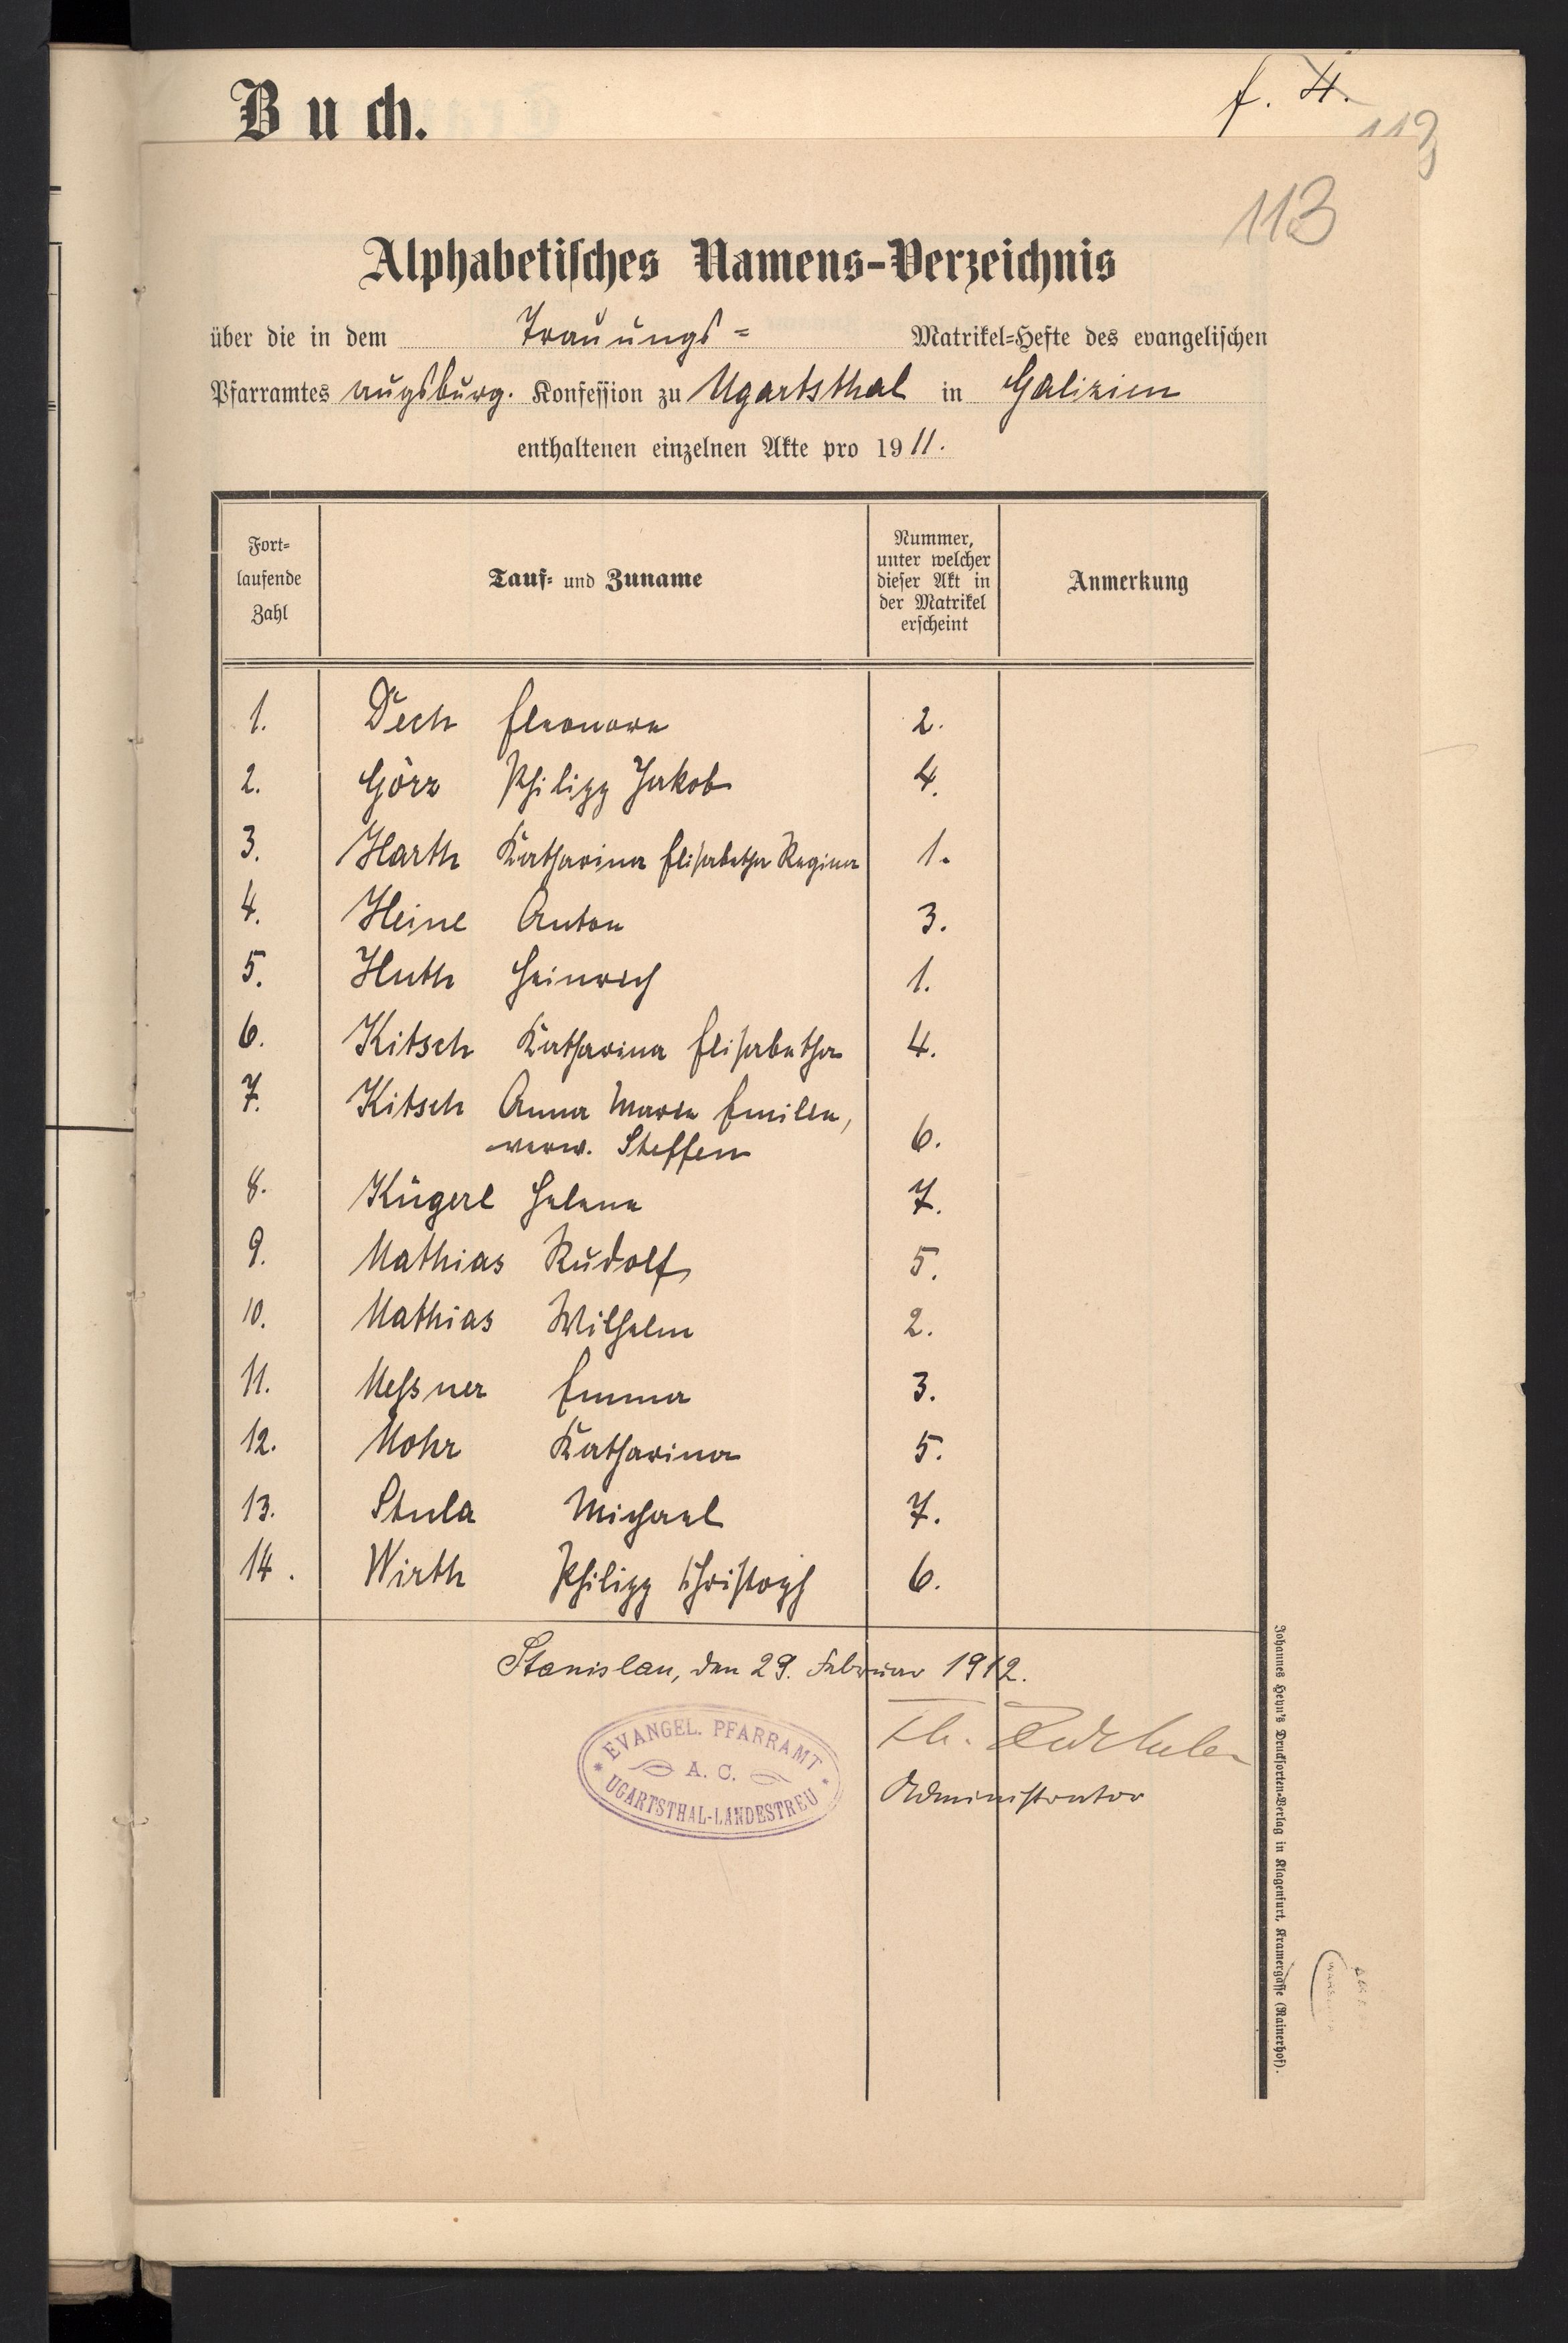 Buch.
f. 4.
113
113
Alphabetisches Namens-Verzeichnis
über die in dem Trauungs- Matrikel-Hefte des evangelischen
Pfarramtes augsburg. Konfession zu Ugartsthal in Galizien
enthaltenen einzelnen Akte pro 1911.
Fort-
laufende
Zahl
Tauf- und Zuname
Nummer,
unter welcher
dieser Akt in
der Matrikel
erscheint
Anmerkung
1. Dech Eleonore 2.
2. Görz Philipp Jakob 4.
3. Harth Katharina Elisabetha Regina 1.
4. Heine Anton 3.
5. Huth Heinrich 1.
6. Kitsch Katharina Elisabetha 4.
7. Kitsch Anna Maria Emilie,
verw. Steffen 6.
8. Kügerl Helene 7.
9. Mathias Rudolf 5.
10. Mathias Wilhelm 2.
11. Messner Emma 3.
12. Mohr Katharina 5.
13. Stula Michael 7.
14. Wirth Philipp Christoph 6.
Stanislau, den 29. Februar 1912.
Th.
Administrator
EVANGEL. PFARRAMT
A. C.
UGARTSTHAL-LANDESTREU
Johannes Heyn's Drucksorten-Verlag in Klagenfurt, Kramergasse (Rainerhof).